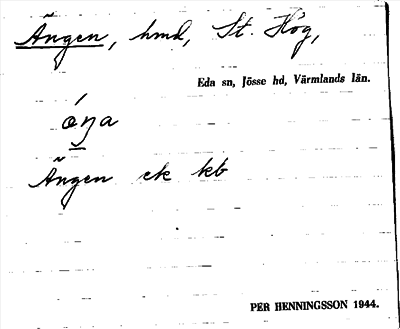 Ängen, hmd, St. Hög,
Eda sn, Jösse hd, Värmlands län.
óŋa
Ängen ek kb
PER HENNINGSSON 1944.